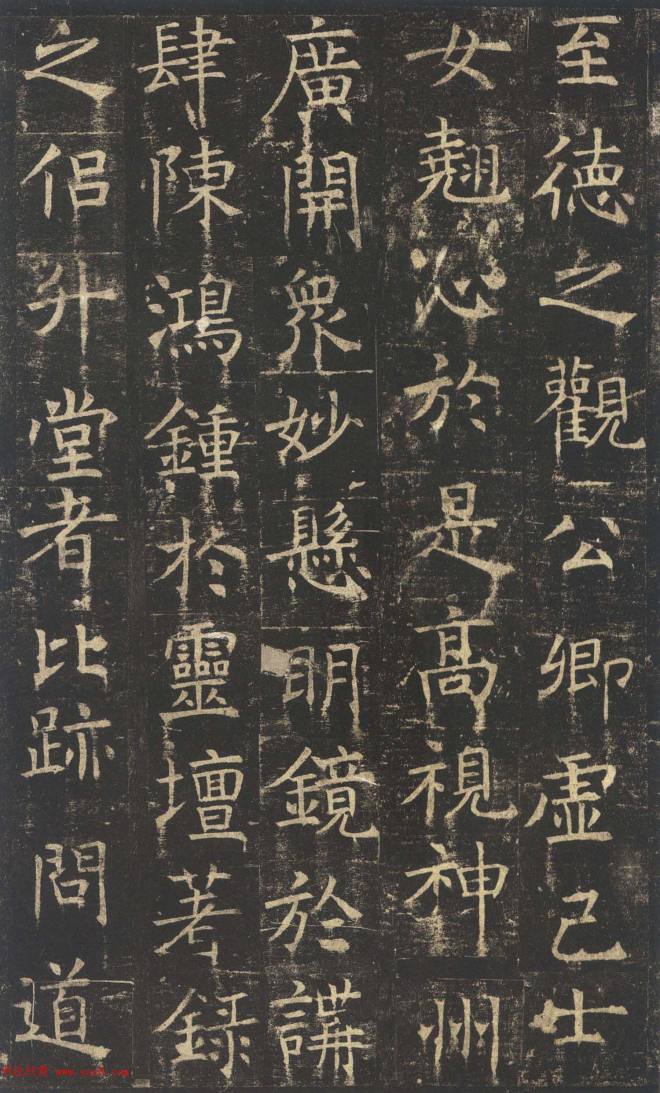 至德之觀公卿虛己士
女翹心於是髙視神州
廣開衆妙懸明鏡於講
肆陳鴻鍾於靈壇著録
之侶升堂者比跡問道